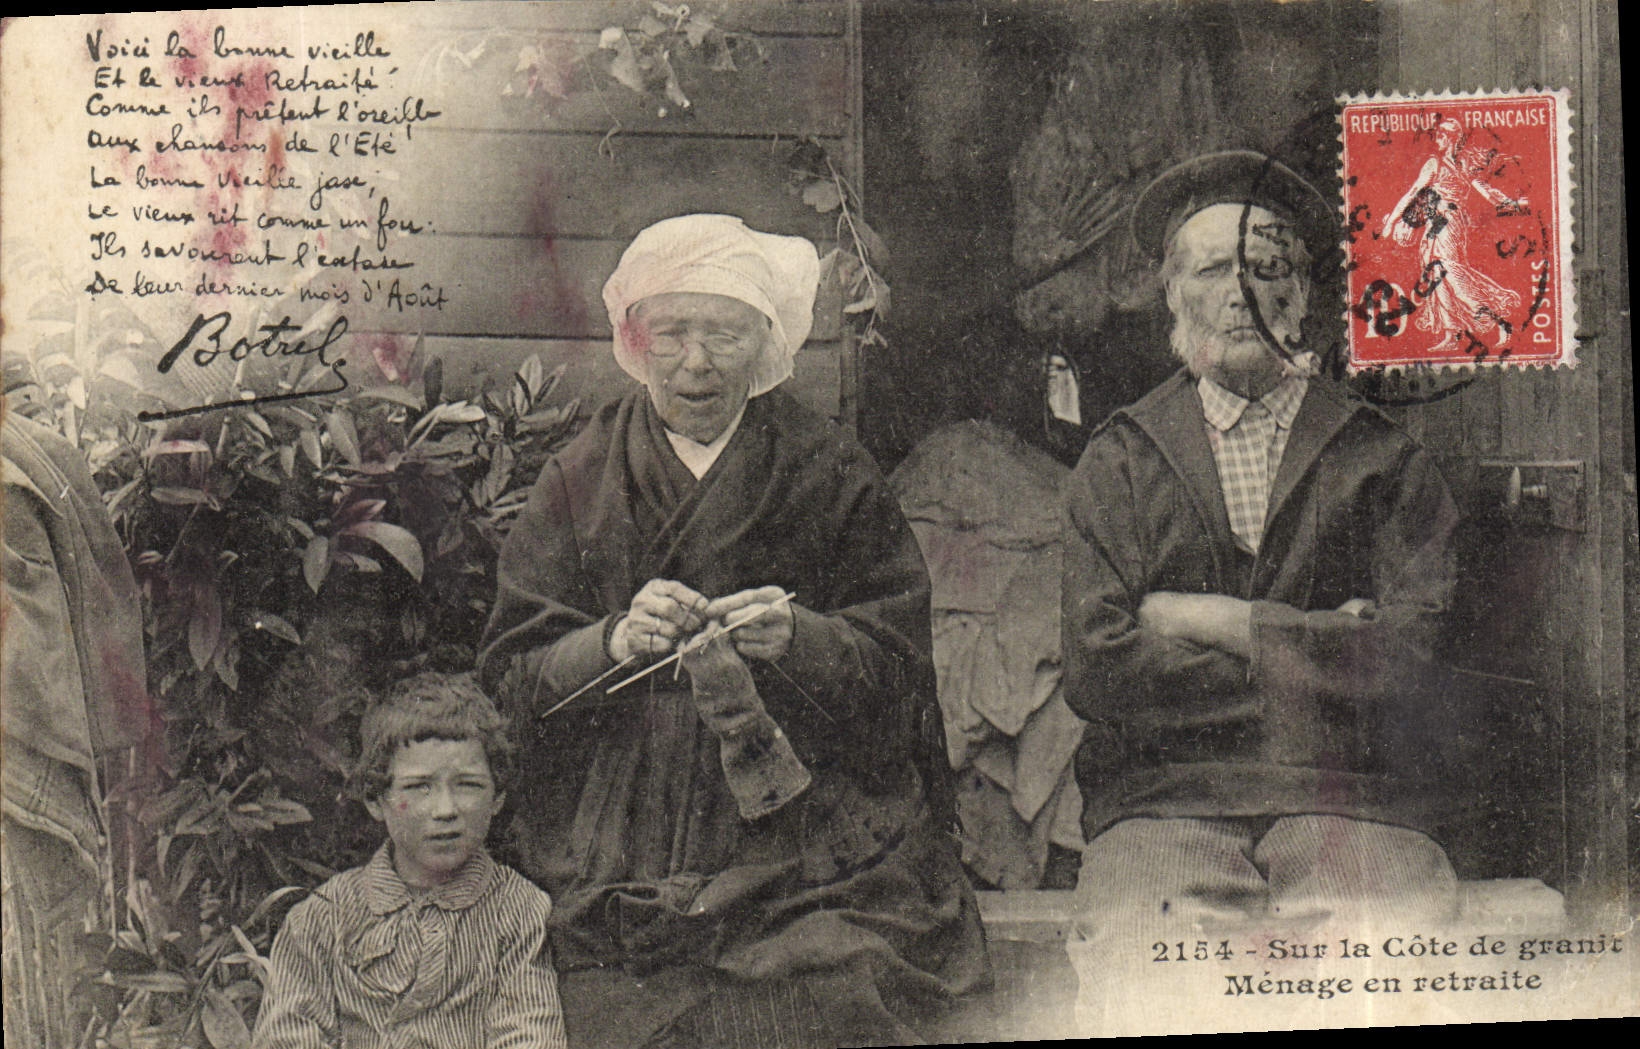 Voici la bonne vieille
Et le vieux Retraité !
Comme ils prêtent l'oreille
Aux chansons de l'Eté !
La bonne vieille jase,
Le vieux rit comme un fou :
Ils savourent l'extase
De leur dernier mois d'Août
Botrel
REPUBLIQUE FRANÇAISE
10
POSTES
2154 - Sur la Côte de granit
Ménage en retraite